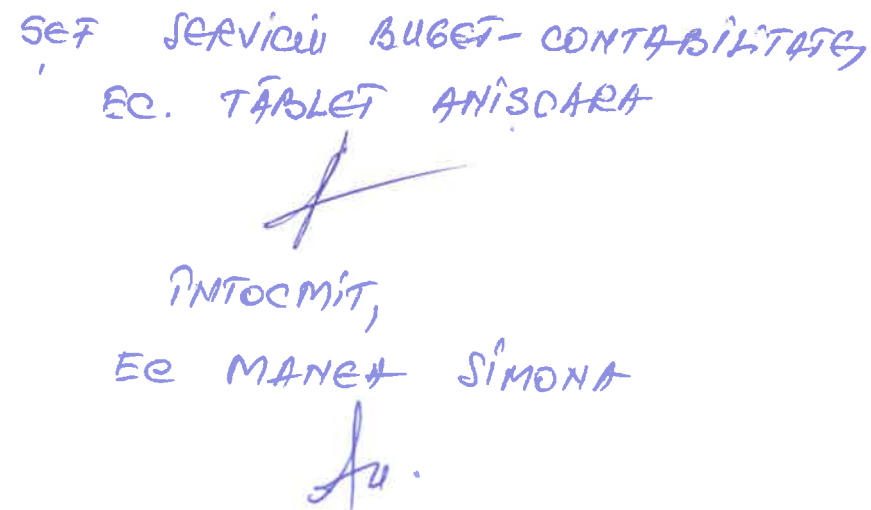 ȘEF SERVICIU BUGET-CONTABILITATE,
EC. TĂBLEȚ ANIȘOARA
ÎNTOCMIT,
EC MANEA SIMONA